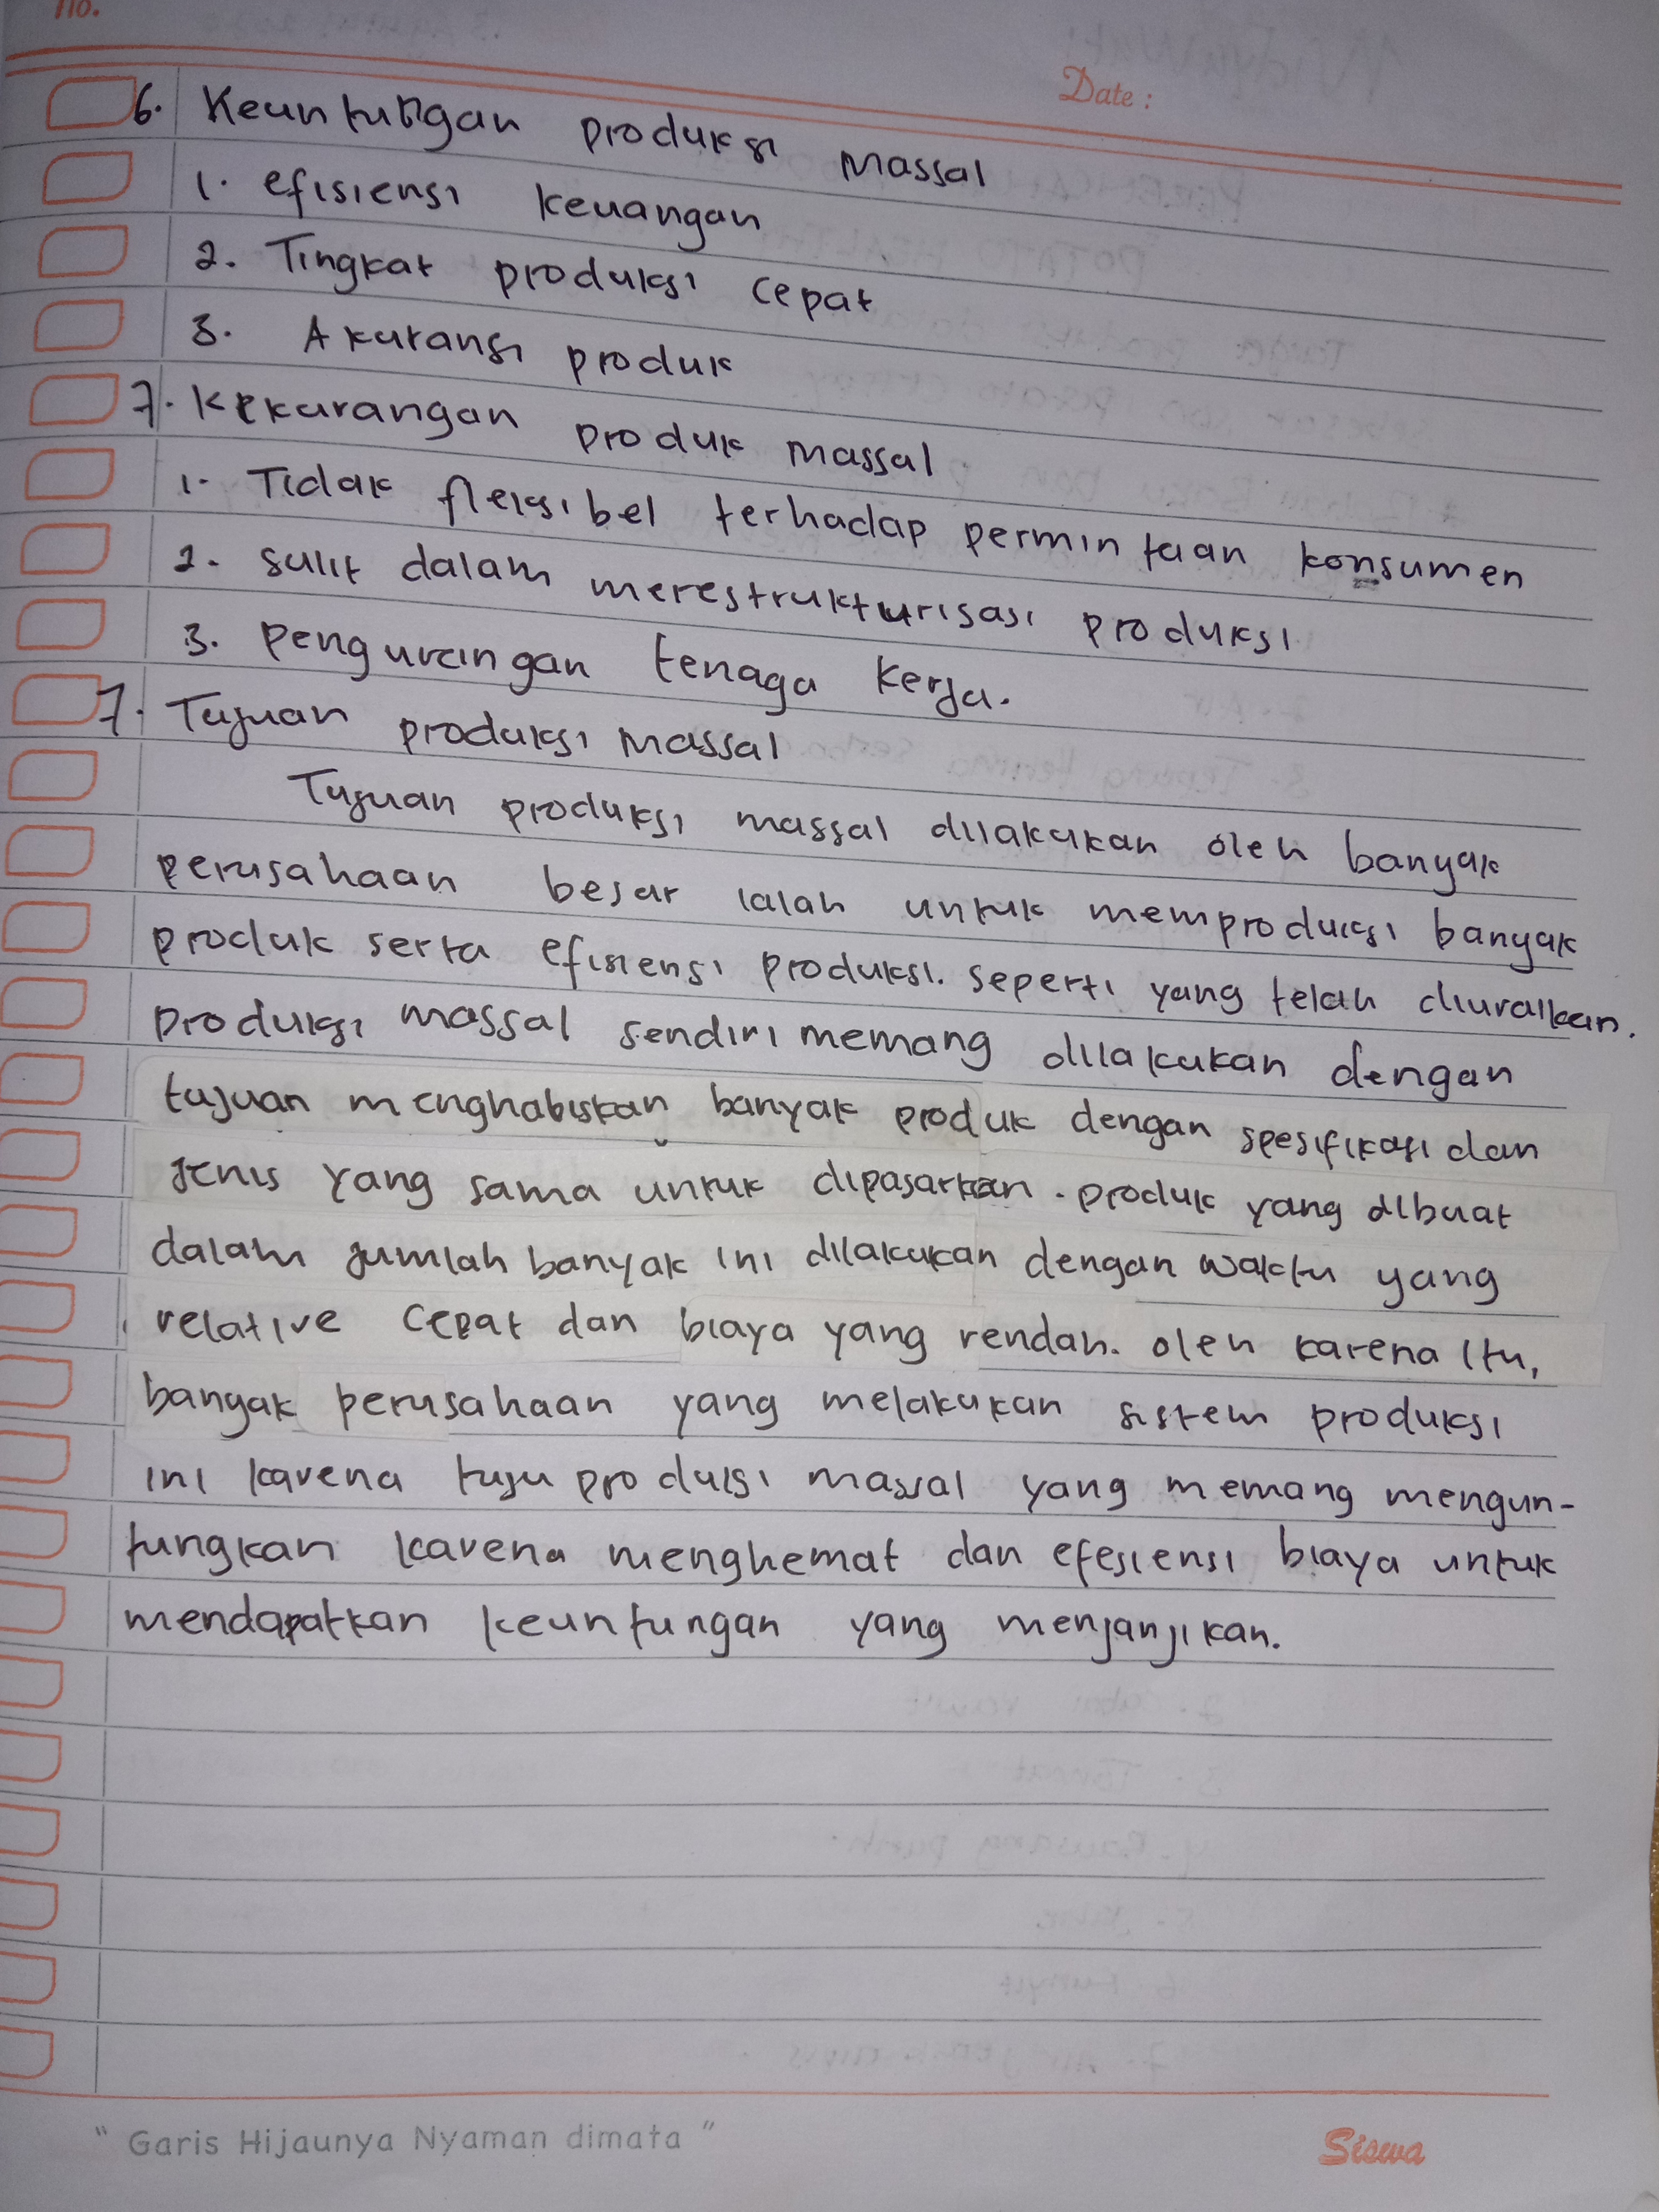 No.
Date :
6. Keuntungan produksi massal
1. efisiensi keuangan
2. Tingkat produksi cepat
3. Akuransi produk
7. Kekurangan produk massal
1. Tidak fleksibel terhadap permintaan konsumen
2. sulit dalam merestrukturisasi produksi
3. pengurangan tenaga kerja.
7. Tujuan produksi massal
Tujuan produksi massal dilakukan oleh banyak
perusahaan besar ialah untuk memproduksi banyak
produk serta efisiensi produksi. seperti yang telah diuraikan.
produksi massal sendiri memang dilakukan dengan
tujuan menghabiskan banyak produk dengan spesifikasi dan
jenis yang sama untuk dipasarkan. produk yang dibuat
dalam jumlah banyak ini dilakukan dengan waktu yang
relative cepat dan biaya yang rendah. oleh karena itu,
banyak perusahaan yang melakukan sistem produksi
ini karena tuju produksi massal yang memang mengun-
tungkan karena menghemat dan efesiensi biaya untuk
mendapatkan keuntungan yang menjanjikan.
" Garis Hijaunya Nyaman dimata "
Siswa